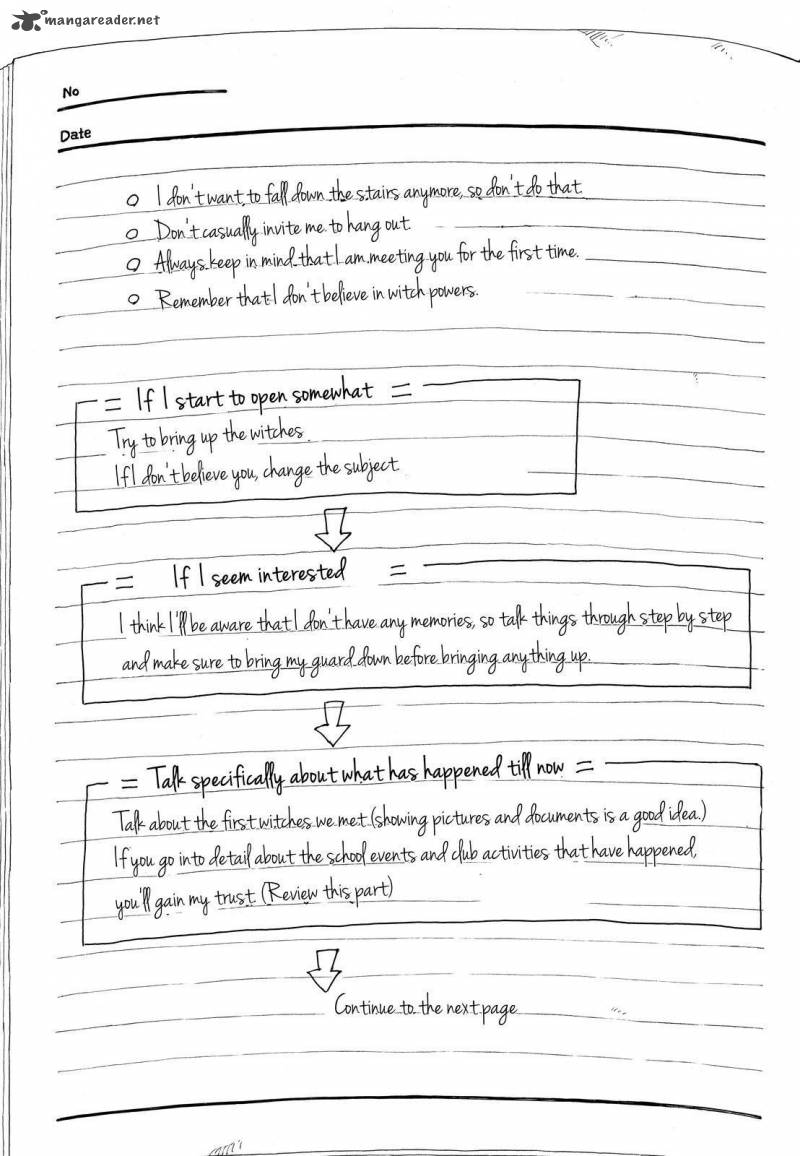 mangareader.net
No
Date
I don't want to fall down the stairs anymore, so don't do that
Don't casually invite me to hang out.
Always keep in mind that I am meeting you for the first time.
Remember that I don't believe in witch powers.
= If I start to open somewhat =
Try to bring up the witches.
If I don't believe you, change the subject
= If I seem interested =
I think I'll be aware that I don't have any memories, so talk things through step by step
and make sure to bring my guard down before bringing anything up.
= Talk specifically about what has happened till now =
Talk about the first witches we met (showing pictures and documents is a good idea.)
If you go into detail about the school events and club activities that have happened,
you'll gain my trust (Review this part)
Continue to the next page